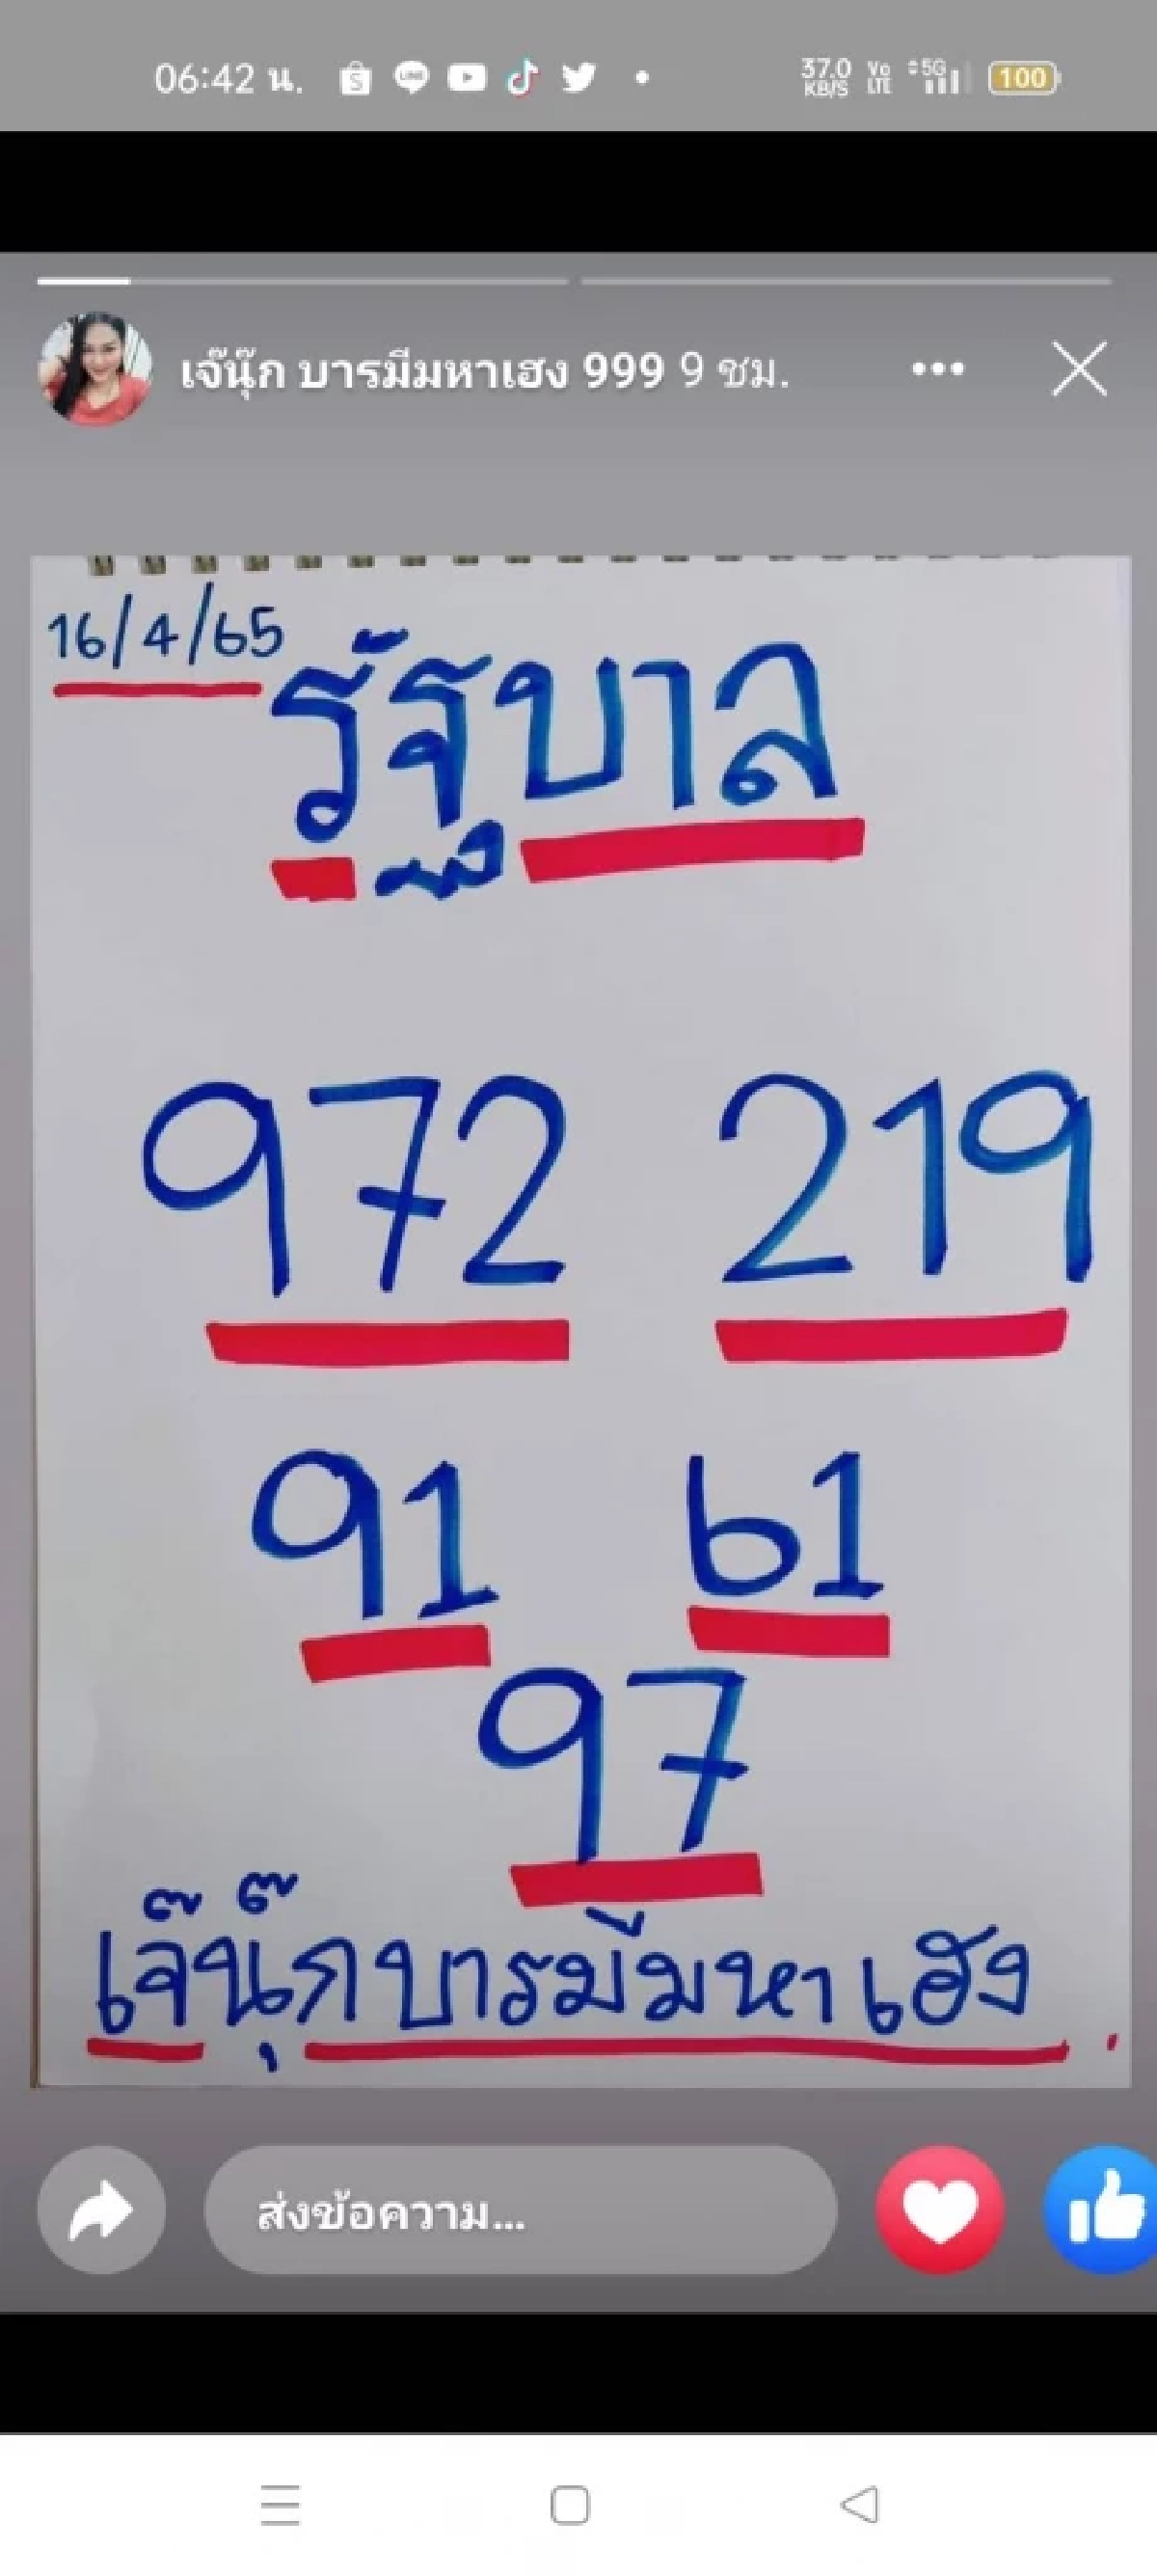 06:42 น.
37.0 KB/S Vo LTE 5G 100
เจ๊นุ๊ก บารมีมหาเฮง 999 9 ชม.
16/4/65
รัฐบาล
972 219
91 61
97
เจ๊นุ๊กบารมีมหาเฮง
ส่งข้อความ...